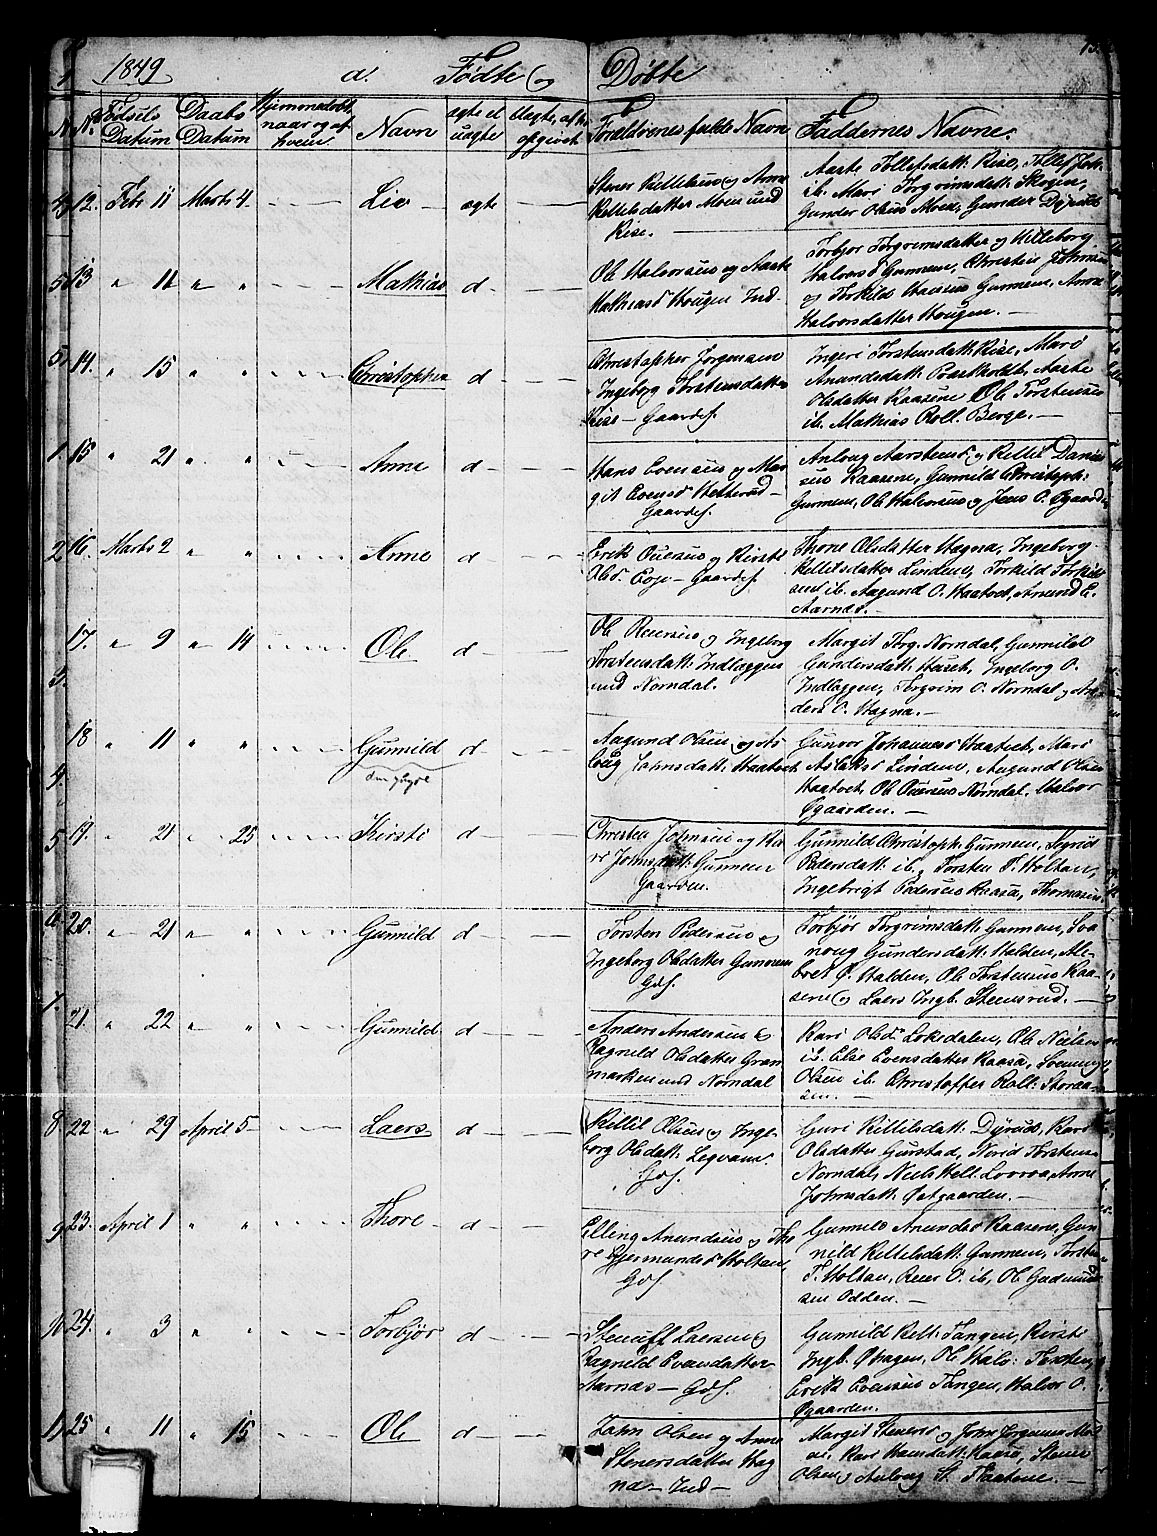 1849 a. Fødte og Døbte
No. Fødsels Datum Daabs Datum Hjemmedøbt, naar og af hvem Navn ægte el. uægte Forældrenes fulde Navn Faddernes Navne.
12. Feb 11 Marts 4. Liv ægte
Stener Kittilsen og Anne
Kittelsdatter Moen und
Rise.
Aaste Tollefsdatt: Rise,
ib. Mari Torgrimsdatt: Skogen,
Gunder Olsen Moen, Gunder Dyrud
13 " 11 " " Mathias d
Ole Halvorsen og Aaste
Mathiasd Hougen Ind.
Torbjør Torgrimsdatter og Kitleborg
Halvorsd Gurmem, Christen Johnsen
og Torkild Hansen Gurmem, Anne
Halvorsdatter Hougen.
14. " 15 " " Christopher d
Christopher Jørgensen
Ingeborg Torstensdatter
Rise - Gaardf.
Ingeri Torstensdatt: Rise, Mari
Anundsdatt: Aaste
Olsdatter Kaasene Ole Torstensen
ib. Mathias Roll. Berge.
15 " 21 " " Anne d
Hans Evensen og Mar-
git Evensd
Gaardf.
Anlaug Aarstensd og Kittil Daniel-
sen Kaasene, Gunnild Christoph:
Gurmem, Ole Halvorsen og Jens O. Øgaard
16. Marts 2 " " Anne d
Erik Ouensen og Kirsti
Olsd. Eoje - Gaardf.
Thone Olsdatter Hagna, Ingeborg
Kittilsdatter Lindem, Torkild Torkild-
sen ib. Aagund O. Haatvet, Anund E.
Aarnæs.
17. " 9 " 14 Ole d
Ole Reiersen og Ingeborg
Torstensdatt: Indlæggen
und Norndal.
Margit Torg. Norndal, Gunnild
Gundersdatt: Huset, Ingeborg O.
Indlæggen, Torgrim O. Norndal og An-
ders O. Hagna.
18 " 11 " " Gunnild d
den yngre
Aagund Olsen og As-
loug Johnsdatt: Haatvet
Gunvor Johannesd Haatvet, Mari
Aslaksd Lindem, Aagund Olsen
Haatvet, Ole Ouensen Norndal, Halvor
Øgaarden.
19. " 21 " 25 Kirsti d
Christen Johnsen og Ka-
ri Johnsdatt: Gurmem
Gaarden.
Gunnild Christoph: Gurmem, Sigrid
Pedersdatt: ib., Torsten T. Holtan,
Ingebrigt Pedersen Kaasa,
20. " 21 " " Gunnild d
Torsten Pedersen og
Ingeborg Olsdatter Gurmem
Gdf.
Torbjør Torgrimsdatter Gurmem, Sva-
noug Gundersdatt: Halden, Al-
bret P. Halden, Ole Torstensen Kaa-
sene og Laers Ingb. Steensrud.
21. " 22 " " Gunnild d
Anders Andersen og
Ragnild Olsdatter Gran-
marken und Norndal
Kari Olsd. Loksdalen, Ole Nielsen
ib. Else Evensdatter Kaasa, Svenung
Olsen ib. Christoffer Roll: Storaa-
sen.
22. " 29 April 5 Laers d
Kittil Olsen og Inge-
borg Olsdatt: Legvam.
Gdf.
Guri Kittilsdatt: Dyrud, Kari
Olsdatter Gurstad, Norid Torstens:
Norndal, Niels Kell: Lovvaa, Anne
Johnsdatt: Østgaarden.
23. April 1 " " Thore d
Elling Anundsen og Tho-
re Gjermundsd Holtan,
Gdf.
Gunnild Anundsd Kaasene, Gun-
nild Kittilsdatt: Gurmem, Torsten
T. Holtan, Reier O. ib, Ole Gudmund-
sen Odden.
24. " 3 " " Torbjør d
Stenulf Laersen og
Ragnild Evensdatter
Aarnæs - Gdf.
Gunnild Kitt: Tangen, Kirsti
Ingb. Øhagen, Ole Halv: Torsten,
Erik Evensen Tangen, Halvor O.
Øgaarden.
25 " 11 " 15 Ole d
John Olsen og Anne
Stenersdatter Hag-
na - Ind.
Margit Stenersd og John Jørgensen Mo-
en, Kari Hansdatt: Kaasa, Stener
Olsen og Anlaug St. Haatvne.